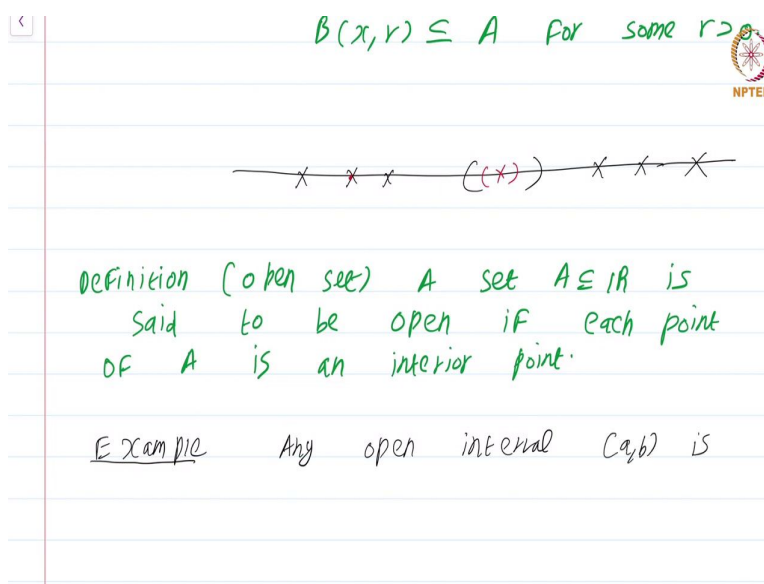 B(x,r) ⊆ A for some r>0
NPTE
Definition (open set) A set A ⊆ IR is
said to be open if each point
of A is an interior point.
Example Any open interval (a,b) is